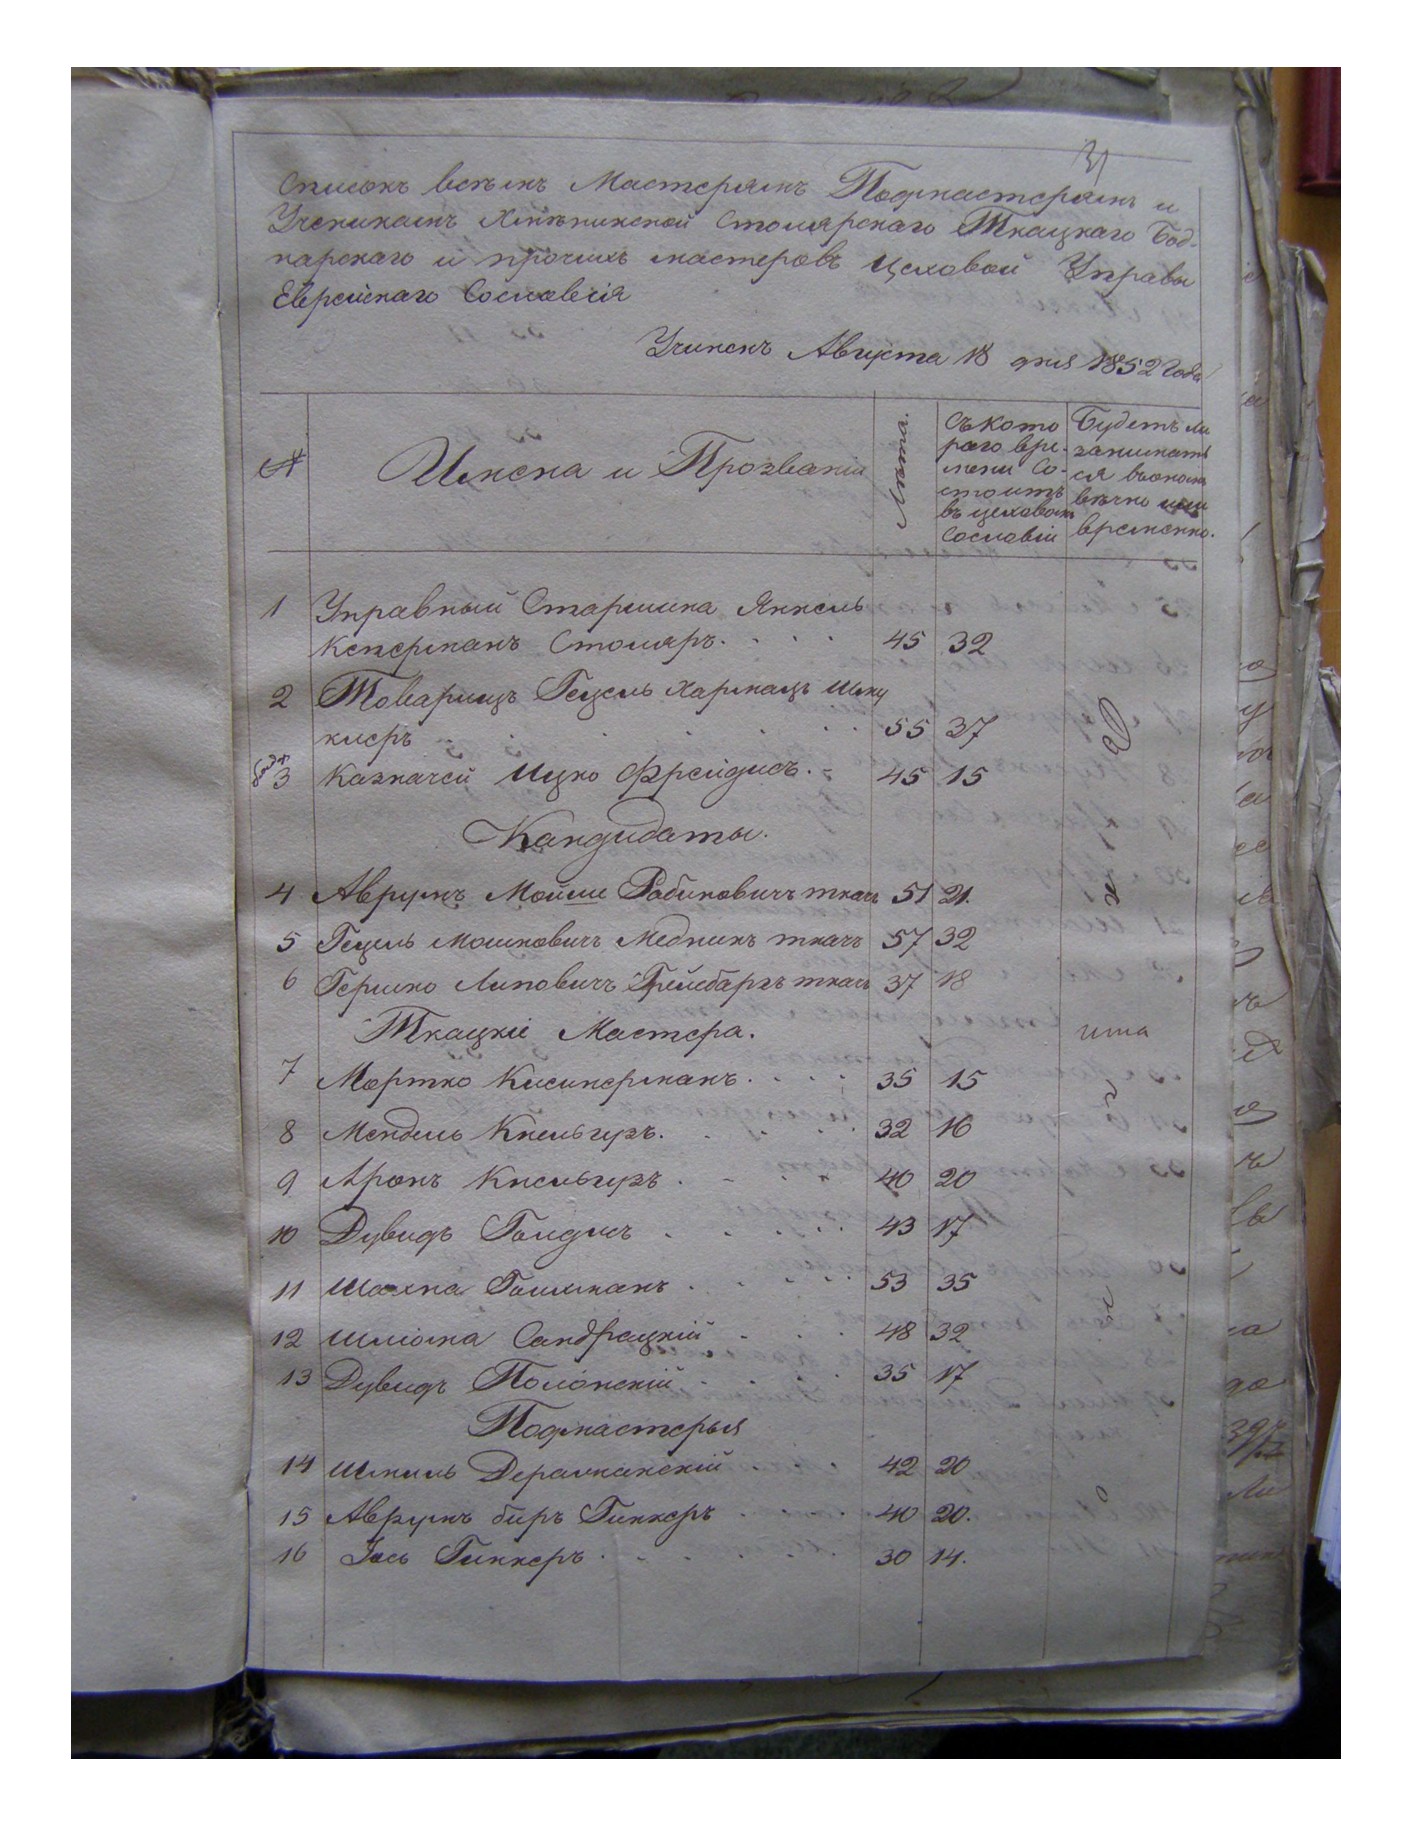 31
Списокъ всѣмъ Мастерамъ Подмастерьямъ и
Ученикамъ Хмѣльникской Столярскаго Ткацкаго Бод-
нарскаго и прочихъ мастеровъ Цеховой Управы
Еврейскаго Сословія
Учиненъ Августа 18 дня 1852 года
№
Имена и Прозванія
Лѣта.
Съ Кото
раго вре-
мени Со-
стоитъ
въ цеховомъ
Сословіи
Будетъ ли
записать
ся въ
вѣчно или
временно.
1 Управный Старшина Янкель
Кеперманъ Столяръ. 45 32
2 Товарищъ Гецель Хармацъ Шму
клеръ 55 37
3 Казначей Ицко Фрейдисъ. 45 15
Кандидаты.
4 Аврумъ Мойше Рабиновичъ ткачъ 51 21.
5 Гецель Мошковичъ Медникъ ткачъ 57 32
6 Гершко Липовичъ ткачъ 37 18
Ткацкіе Мастера.
7 Мортко 35 15
8 Мендель 32 16
9 Аронъ 40 20
10 Дувидъ Голдисъ 43 17
11 Шахна Гошманъ. 53 35
12 Шлюма Сандрацкій 48 32
13 Дувидъ Полонскій 35 17
Подмастерья
14 Шмиль Деражнянскій 42 20
15 Аврумъ беръ Гинкеръ 40 20.
16 Іось Гинкеръ 30 14.